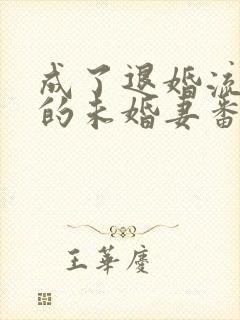 成了退婚流
的未婚妻番
王华庆